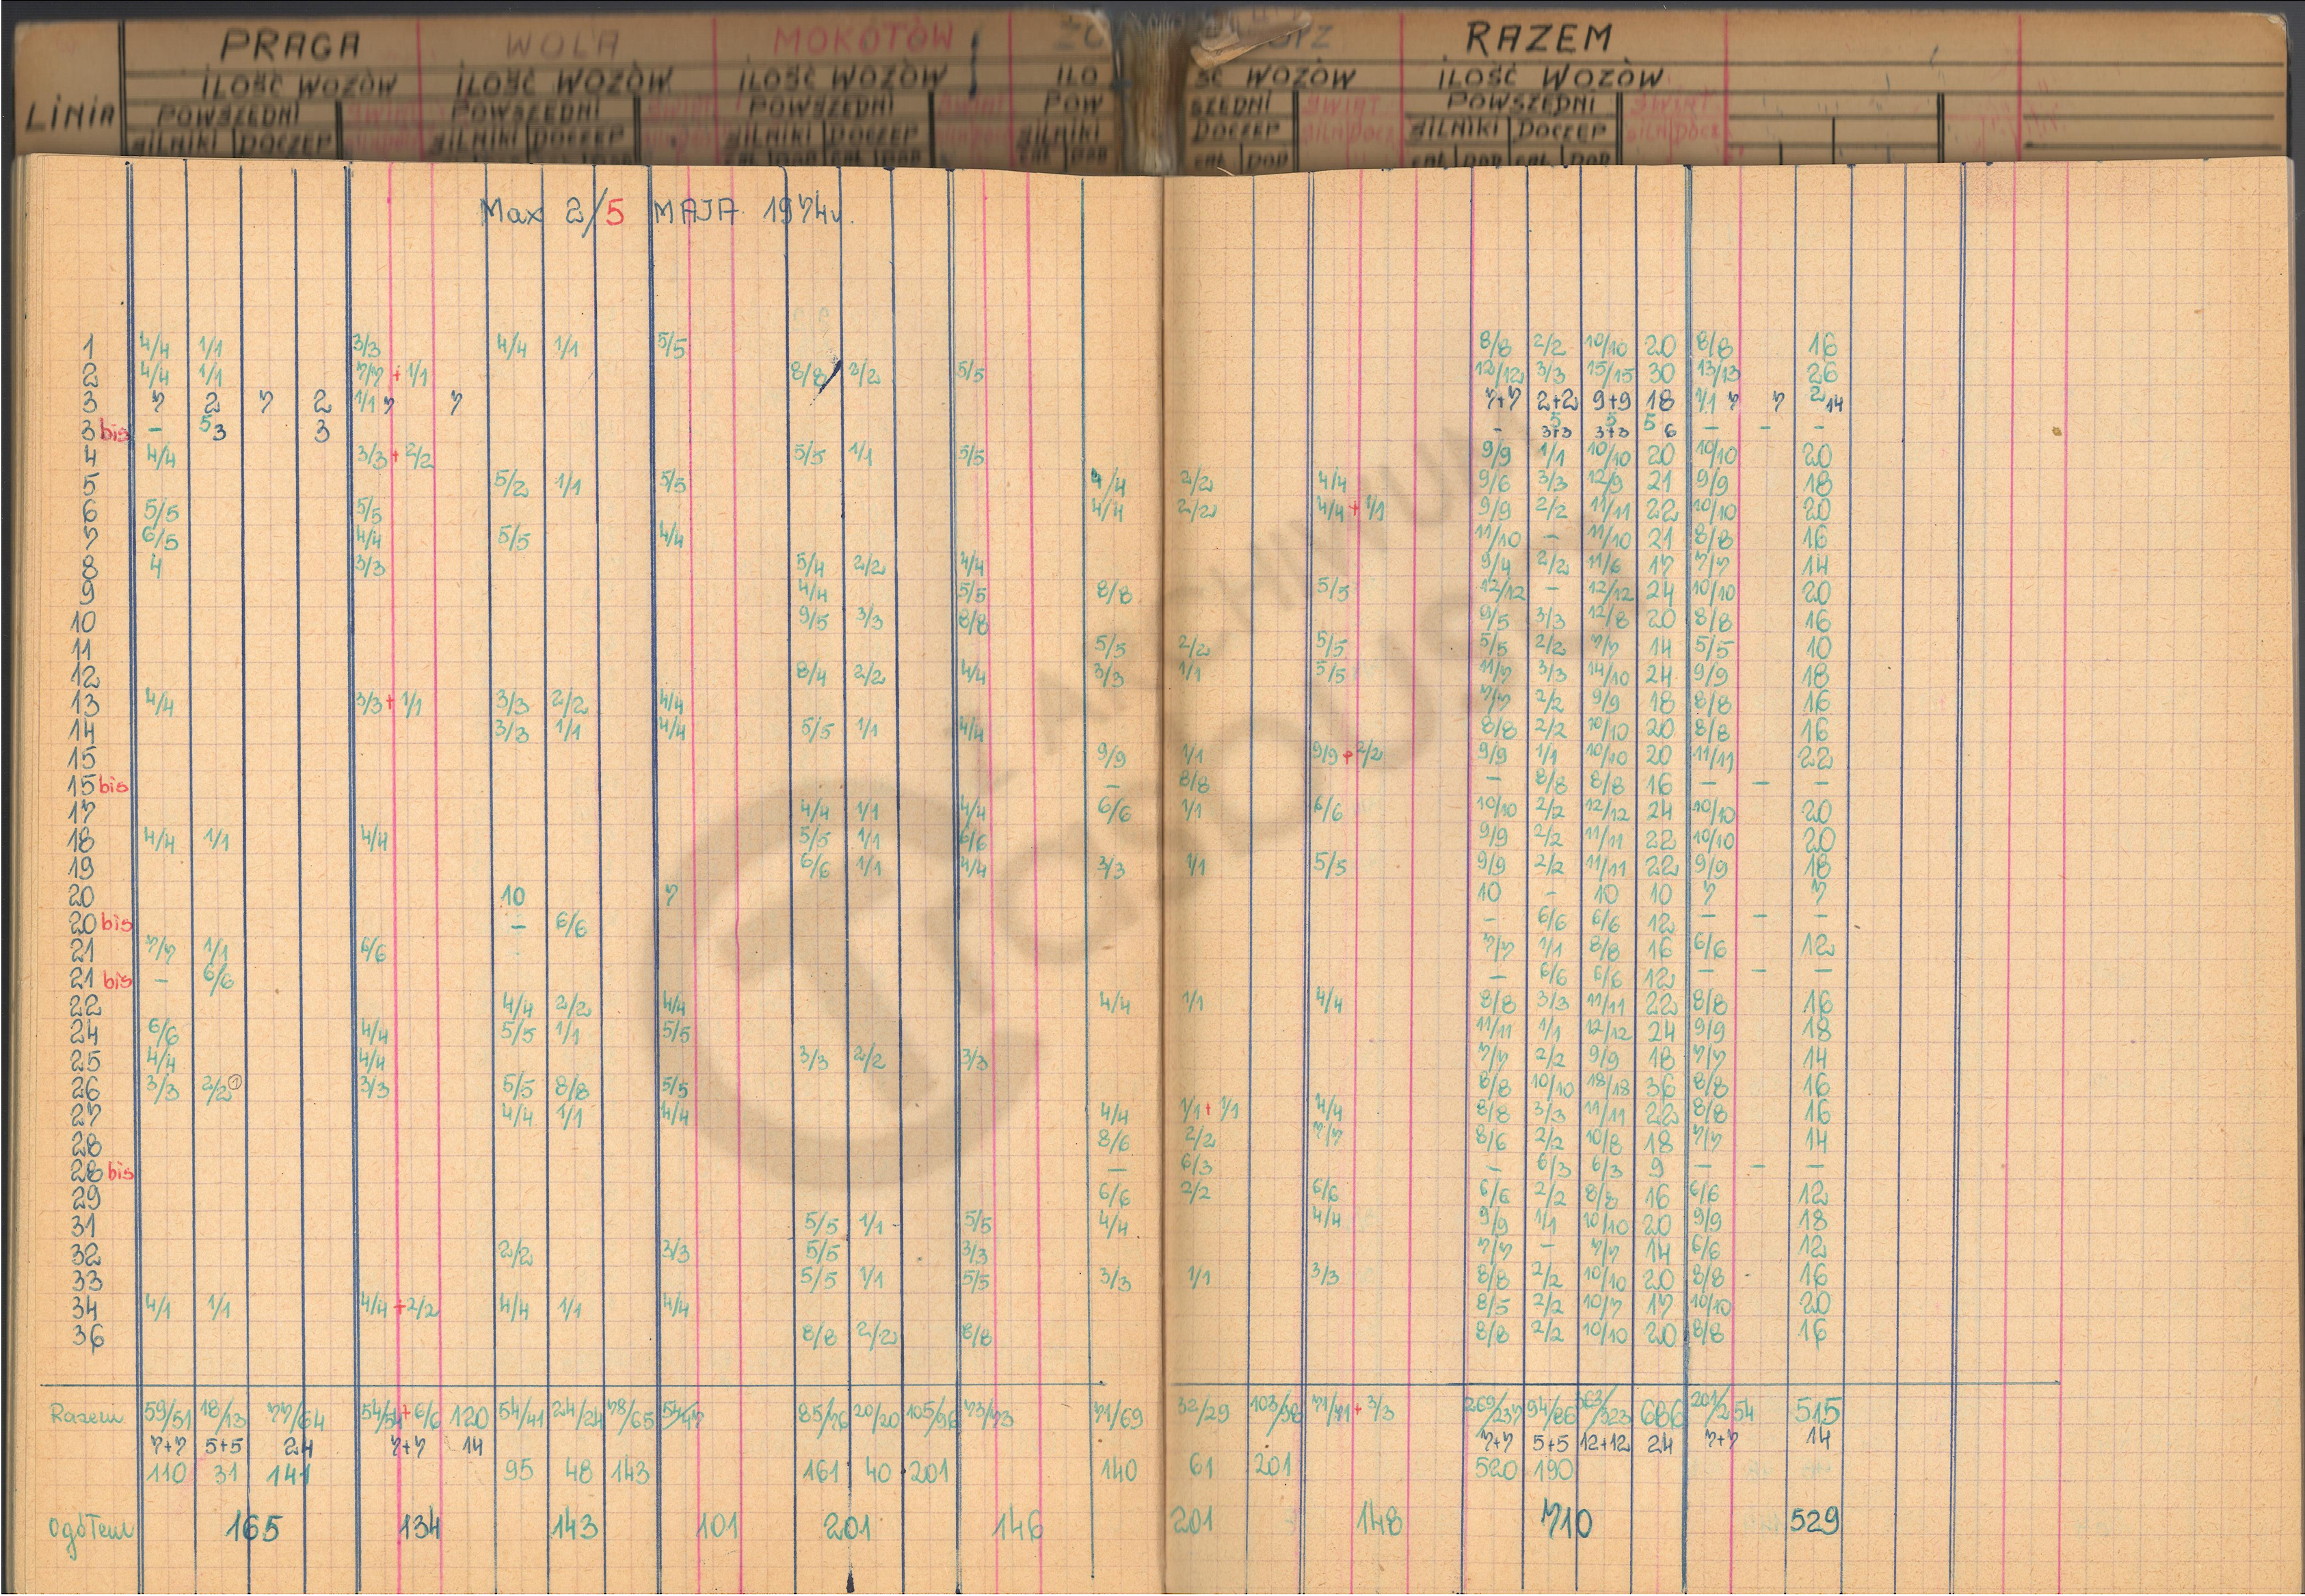 PRAGA WOLA MOKOTÓW RAZEM
ILOŚĆ WOZÓW ILOŚĆ WOZÓW ILOŚĆ WOZÓW ILO ŚĆ WOZÓW ILOŚĆ WOZÓW
LINIA POWSZEDNI POWSZEDNI POWSZEDNI POW SZEDNI ŚWIĄT POWSZEDNI ŚWIĄT
SILNIKI DOCZEP SILNIKI DOCZEP SILNIKI DOCZEP SILNIKI DOCZEP SILNIKI DOCZEP
Max 2/5 MAJA 1974r.
1 4/4 1/1 3/3 4/4 1/1 5/5 8/8 2/2 10/10 20 8/8 16
2 4/4 1/1 7/7 + 1/1 8/8 2/2 5/5 12/12 3/3 15/15 30 13/13 26
3 7 2 7 2 1/1 7 7 7+7 2+2 9+9 18 1/1 7 7 2 14
3 bis - 5 3 3 - 5 3+3 5 3+3 5 6 - - -
4 4/4 3/3 + 2/2 5/5 1/1 5/5 9/9 1/1 10/10 20 10/10 20
5 5/2 1/1 5/5 4/4 2/2 4/4 9/6 3/3 12/9 21 9/9 18
6 5/5 5/5 4/4 2/2 4/4 + 1/1 9/9 2/2 11/11 22 10/10 20
7 6/5 4/4 5/5 4/4 11/10 - 11/10 21 8/8 16
8 4 3/3 5/4 2/2 4/4 9/4 2/2 11/6 17 7/7 14
9 4/4 5/5 8/8 5/5 12/12 - 12/12 24 10/10 20
10 9/5 3/3 8/8 9/5 3/3 12/8 20 8/8 16
11 5/5 2/2 5/5 5/5 2/2 7/7 14 5/5 10
12 8/4 2/2 4/4 3/3 1/1 5/5 11/7 3/3 14/10 24 9/9 18
13 4/4 3/3 + 1/1 3/3 2/2 4/4 7/7 2/2 9/9 18 8/8 16
14 3/3 1/1 4/4 5/5 1/1 4/4 8/8 2/2 10/10 20 8/8 16
15 9/9 1/1 9/9 + 2/2 9/9 1/1 10/10 20 11/11 22
15 bis - 8/8 - 8/8 8/8 16 - - -
17 4/4 1/1 4/4 6/6 1/1 6/6 10/10 2/2 12/12 24 10/10 20
18 4/4 1/1 4/4 5/5 1/1 6/6 9/9 2/2 11/11 22 10/10 20
19 6/6 1/1 4/4 3/3 1/1 5/5 9/9 2/2 11/11 22 9/9 18
20 10 7 10 - 10 10 7 7
20 bis - 6/6 - 6/6 6/6 12 - - -
21 7/7 1/1 6/6 7/7 1/1 8/8 16 6/6 12
21 bis - 6/6 - 6/6 6/6 12 - - -
22 4/4 2/2 4/4 4/4 1/1 4/4 8/8 3/3 11/11 22 8/8 16
24 6/6 4/4 5/5 1/1 5/5 11/11 1/1 12/12 24 9/9 18
25 4/4 4/4 3/3 2/2 3/3 7/7 2/2 9/9 18 7/7 14
26 3/3 2/2 ① 3/3 5/5 8/8 5/5 8/8 10/10 18/18 36 8/8 16
27 4/4 1/1 4/4 4/4 1/1 + 1/1 4/4 8/8 3/3 11/11 22 8/8 16
28 8/6 2/2 7/7 8/6 2/2 10/8 18 7/7 14
28 bis - 6/3 - 6/3 6/3 9 - - -
29 6/6 2/2 6/6 6/6 2/2 8/8 16 6/6 12
31 5/5 1/1 5/5 4/4 4/4 9/9 1/1 10/10 20 9/9 18
32 2/2 3/3 5/5 3/3 7/7 - 7/7 14 6/6 12
33 5/5 1/1 5/5 3/3 1/1 3/3 8/8 2/2 10/10 20 8/8 16
34 4/1 1/1 4/4 + 2/2 4/4 1/1 4/4 8/5 2/2 10/7 17 10/10 20
36 8/8 2/2 8/8 8/8 2/2 10/10 20 8/8 16
Razem 59/51 18/13 77/64 54/54 + 6/6 120 54/41 24/24 78/65 54/47 85/76 20/20 105/96 73/73 71/69 32/29 103/98 71/71 + 3/3 269/237 94/86 363/323 686 201/254 515
7+7 5+5 24 7+7 14 7+7 5+5 12+12 24 7+7 14
110 31 141 95 48 143 161 40 201 140 61 201 520 190
Ogółem 165 134 143 101 201 146 201 148 710 529